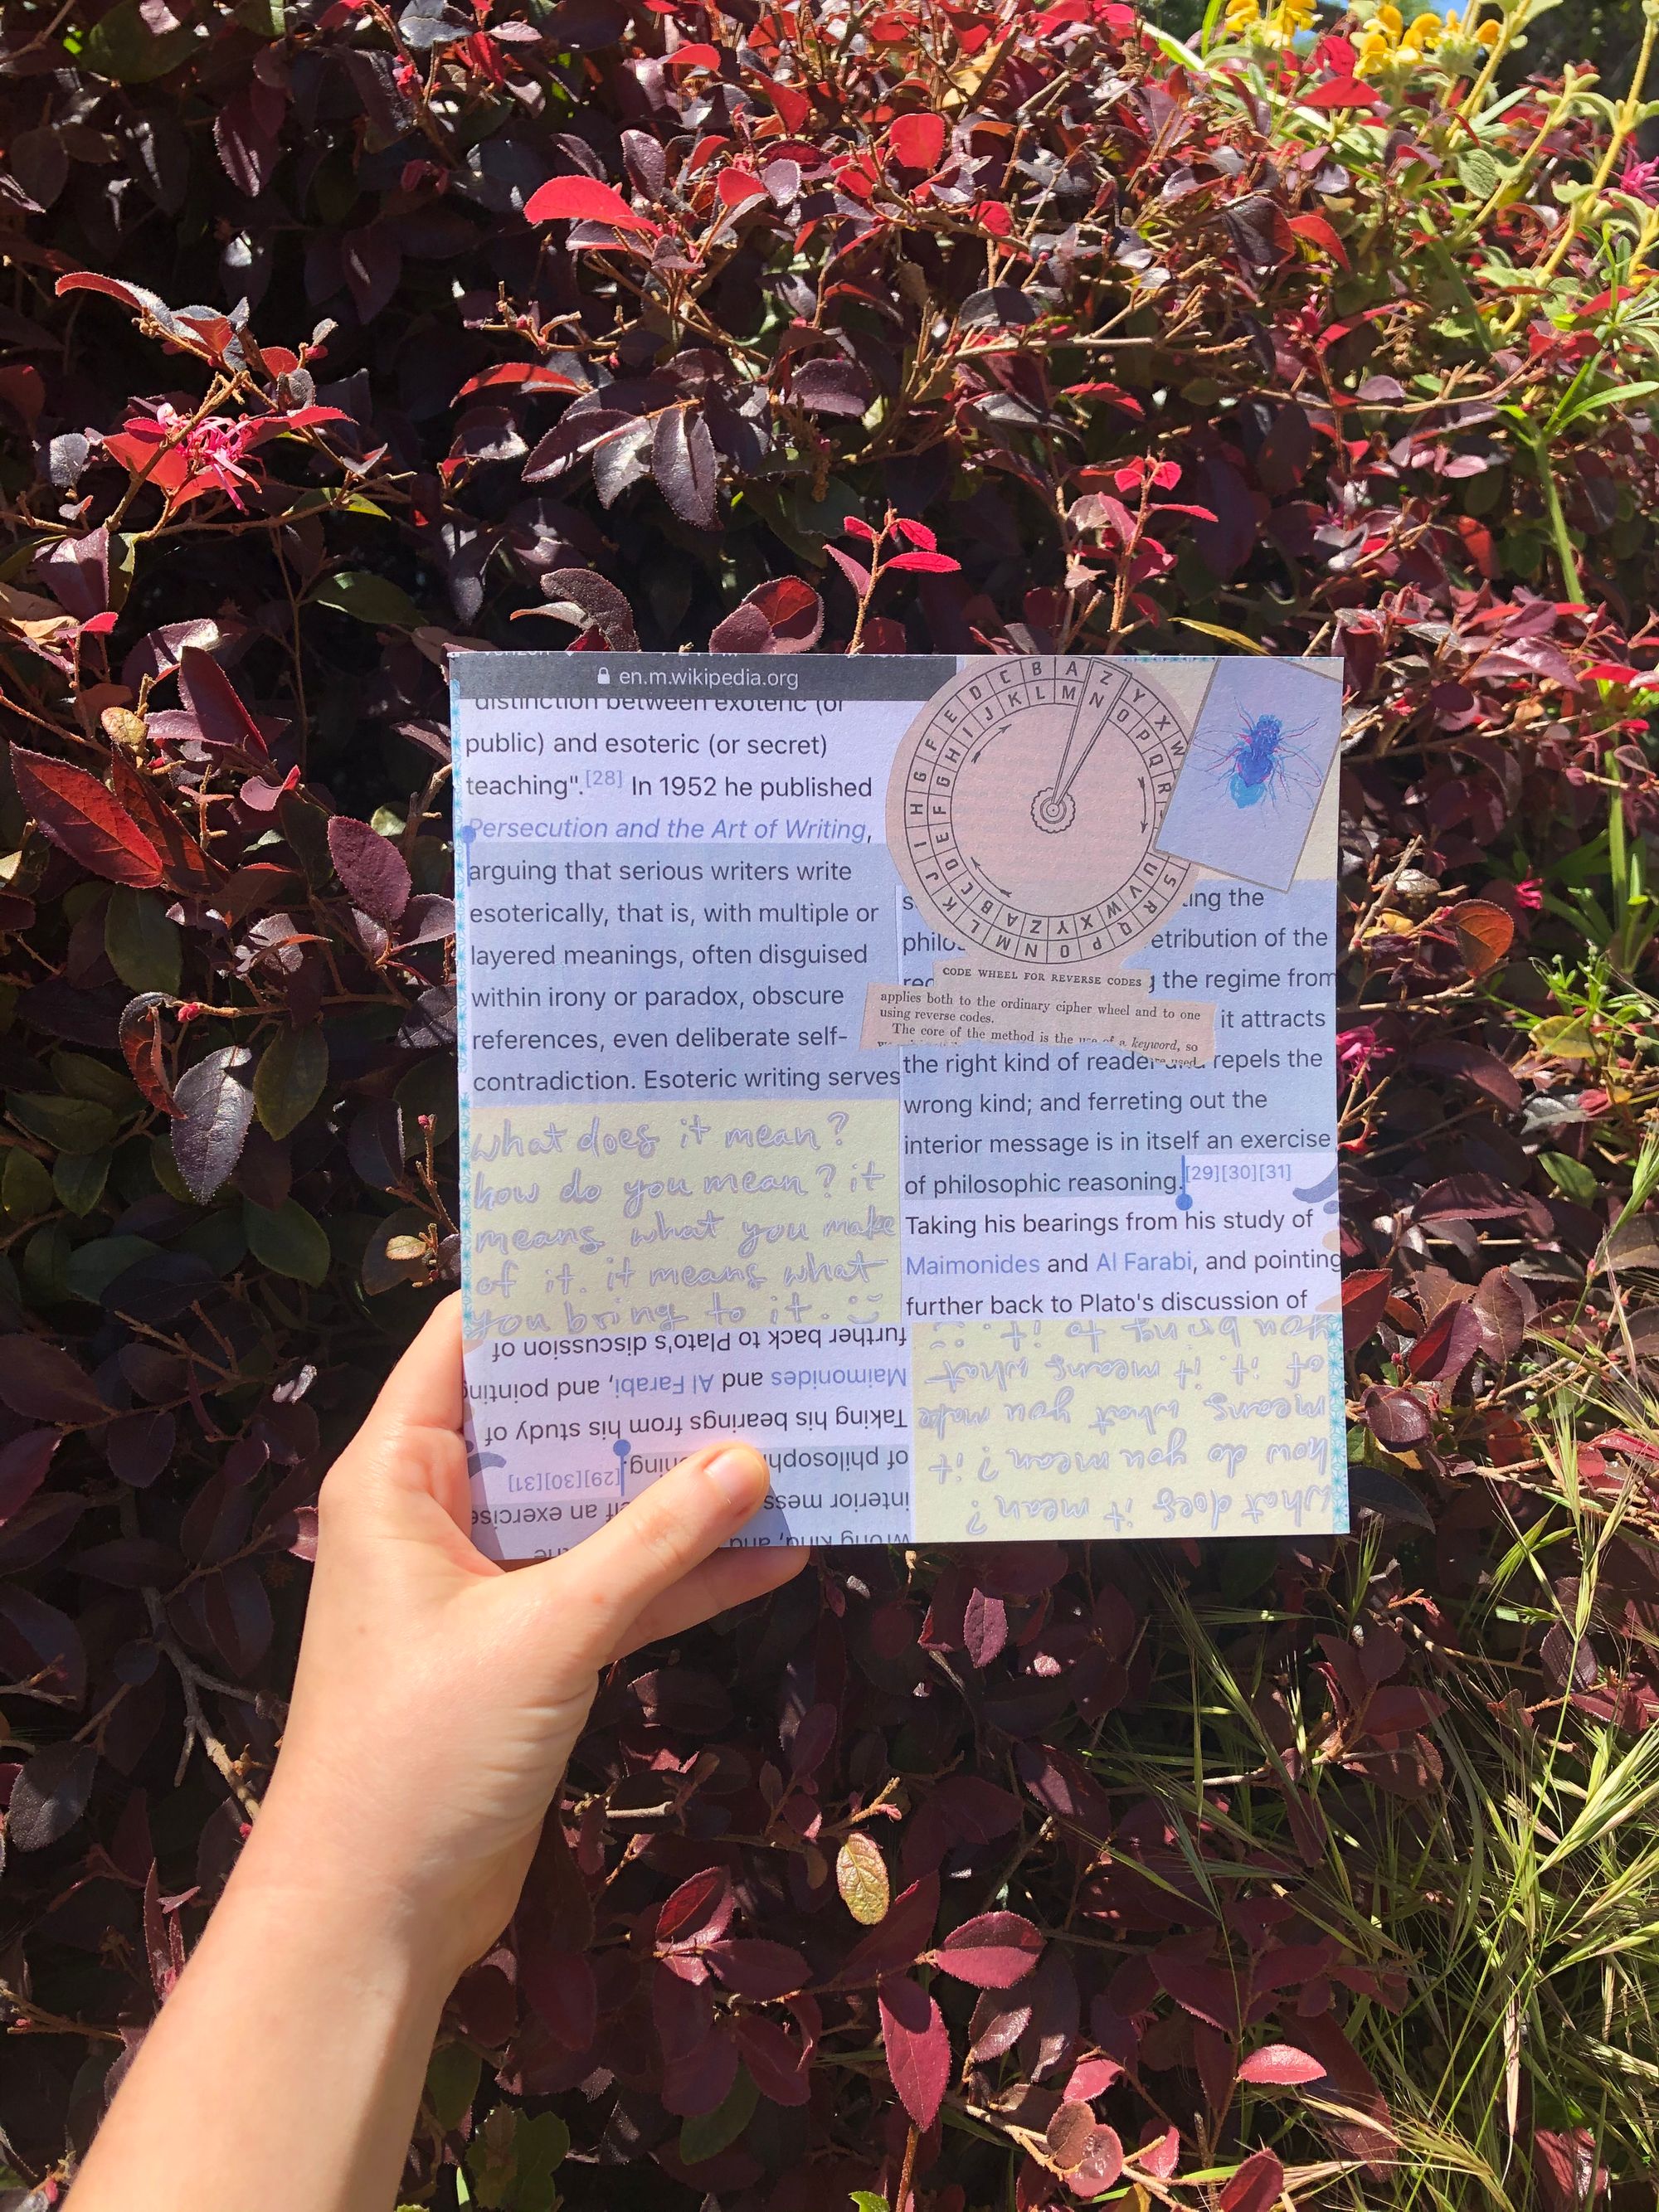 en.m.wikipedia.org
distinction between exoteric (or
public) and esoteric (or secret)
teaching".[28] In 1952 he published
Persecution and the Art of Writing,
arguing that serious writers write
esoterically, that is, with multiple or
layered meanings, often disguised
within irony or paradox, obscure
references, even deliberate self-
contradiction. Esoteric writing serves
what does it mean?
how do you mean? it
means what you make
of it. it means what
you bring to it. :)
A Z Y X W S R Q P O N M L K J I H G F E D C B
M N O P Q R U V W X Y Z A B C D E F G H I J K L
CODE WHEEL FOR REVERSE CODES
applies both to the ordinary cipher wheel and to one
using reverse codes.
The core of the method is the use of a keyword, so
the
etribution of the
the regime from
it attracts
the right kind of reader repels the
wrong kind; and ferreting out the
interior message is in itself an exercise
of philosophic reasoning.[29][30][31]
Taking his bearings from his study of
Maimonides and Al Farabi, and pointing
further back to Plato's discussion of
further back to Plato's discussion of
Maimonides and Al Farabi, and pointing
Taking his bearings from his study of
of philosoph ning.[29][30][31]
interior mess f an exercise
wrong kind, and the
you bring to it. :)
of it. it means what
means what you make
how do you mean? it
what does it mean?